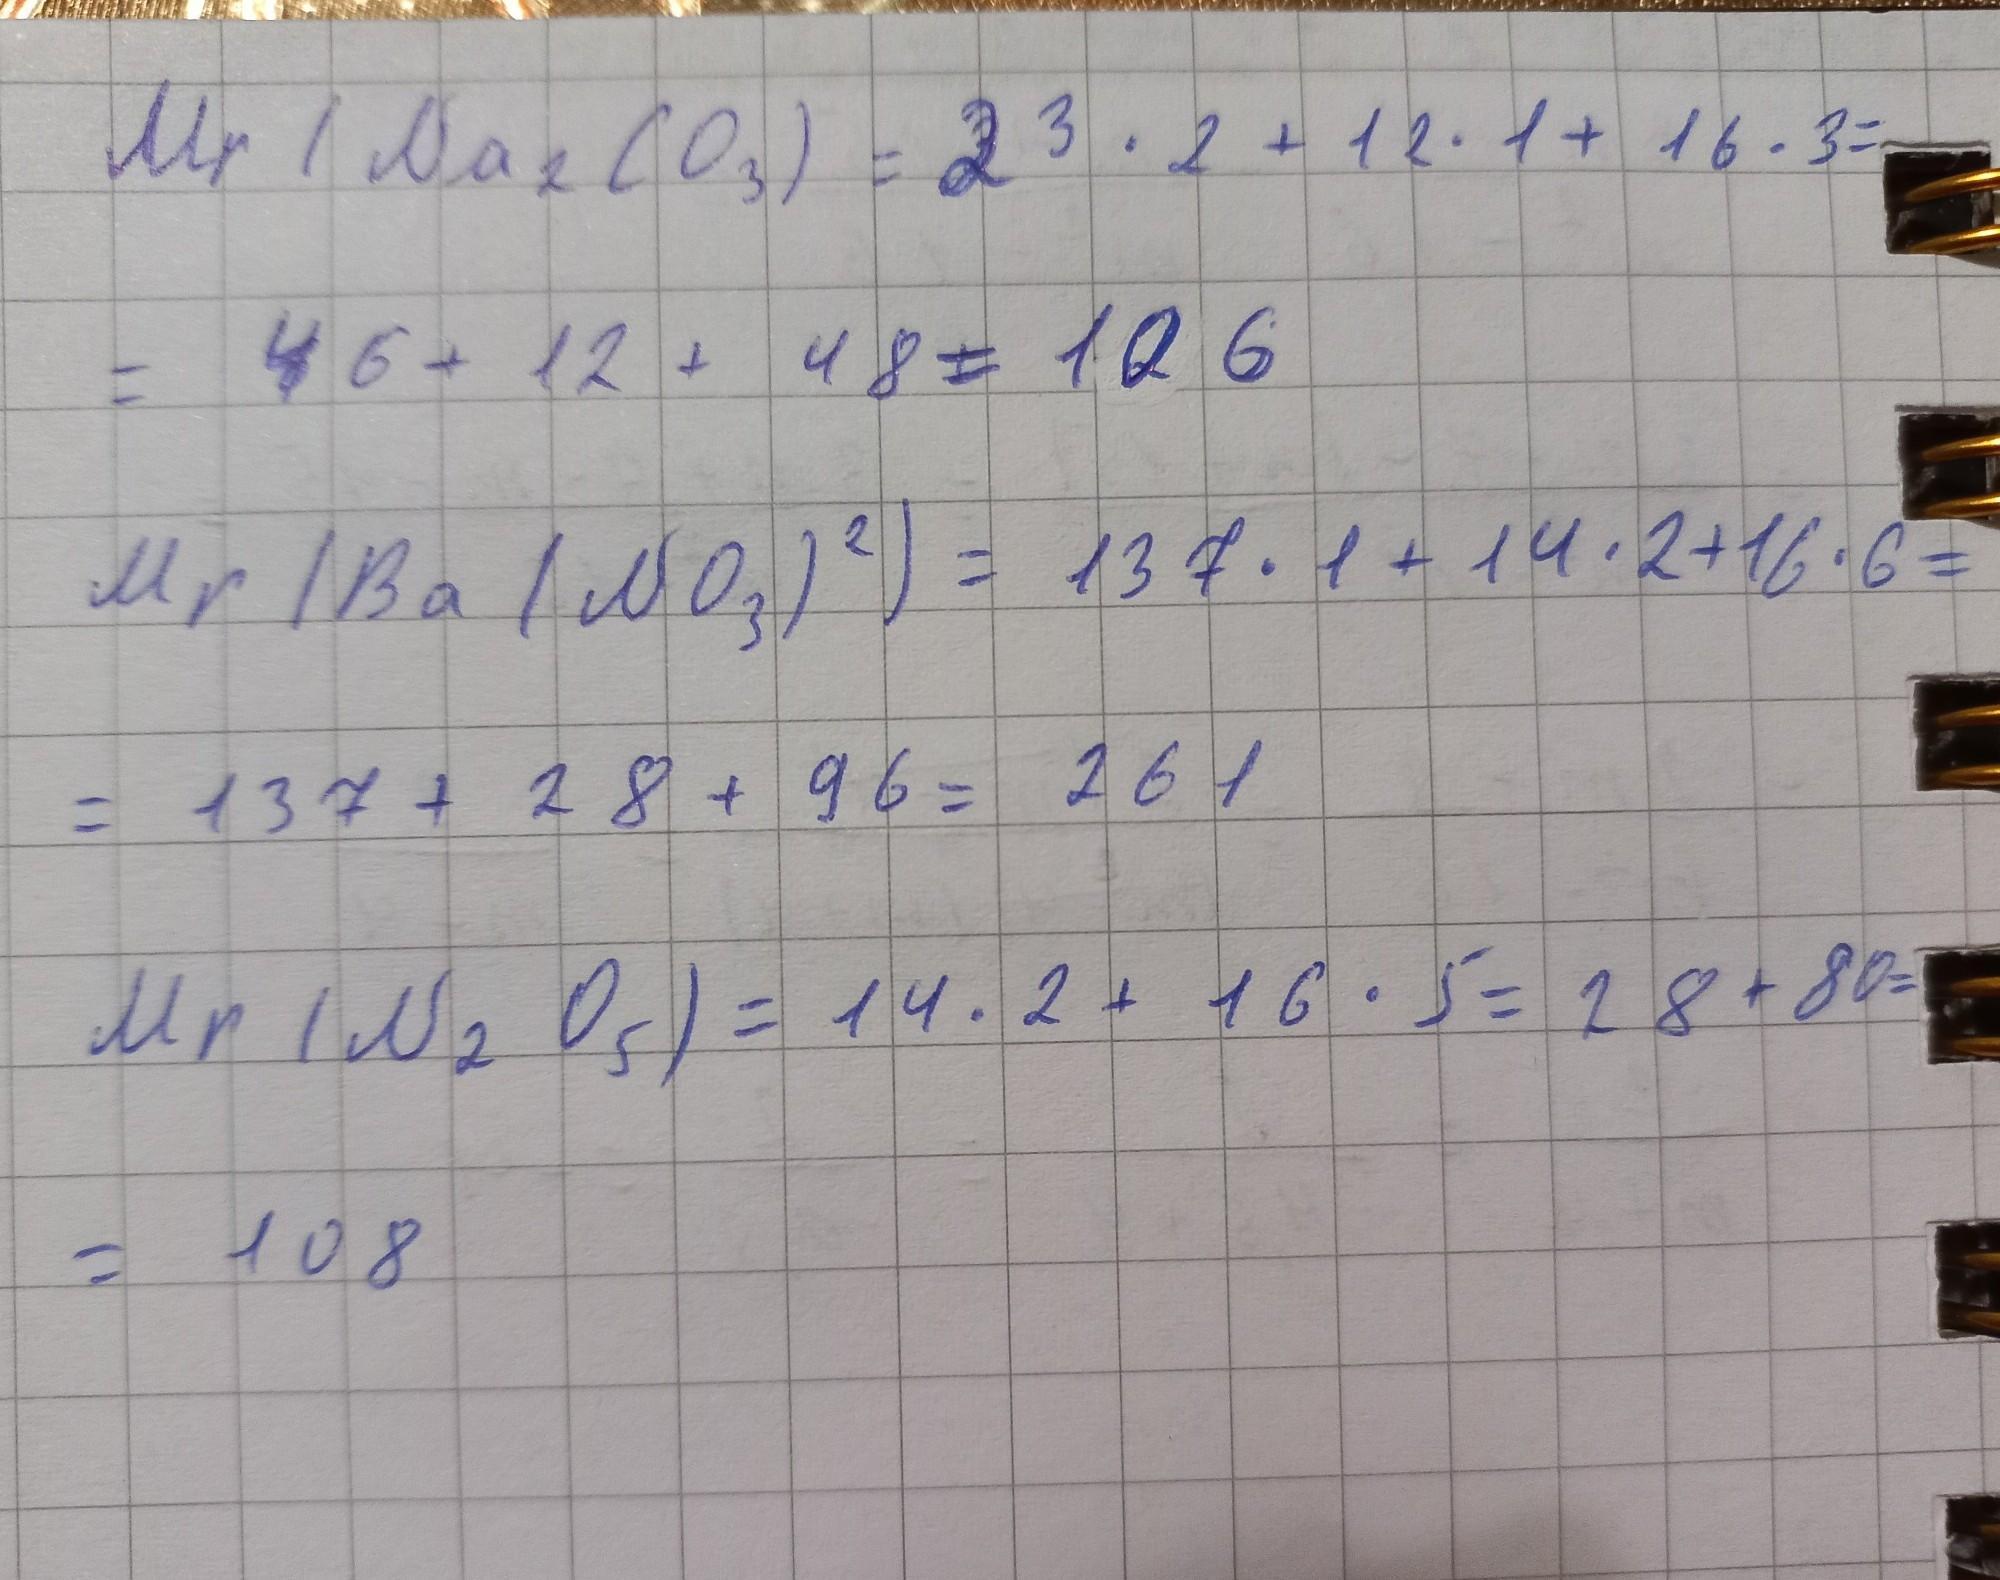 Mr (Na₂CO₃) = 23 · 2 + 12 · 1 + 16 · 3 =
= 46 + 12 + 48 = 106
Mr (Ba(NO₃)²) = 137 · 1 + 14 · 2 + 16 · 6 =
= 137 + 28 + 96 = 261
Mr (N₂O₅) = 14 · 2 + 16 · 5 = 28 + 80 =
= 108